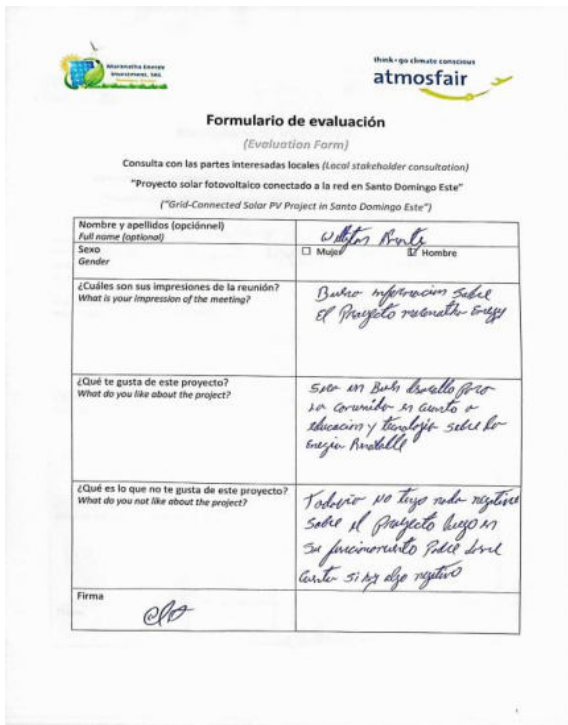 Maranatha Energy
Investment, SRL
think • go climate conscious
atmosfair
Formulario de evaluación
(Evaluation Form)
Consulta con las partes interesadas locales (Local stakeholder consultation)
"Proyecto solar fotovoltaico conectado a la red en Santo Domingo Este"
("Grid-Connected Solar PV Project in Santo Domingo Este")
Nombre y apellidos (opciónnel)
Full name (optional)
Sexo
Gender
Mujer
Hombre
¿Cuáles son sus impresiones de la reunión?
What is your impression of the meeting?
Bueno informacion sobre
El Proyecto maranatha Energy
¿Qué te gusta de este proyecto?
What do you like about the project?
Sera un Buen para
la comunida en cuanto a
educacion y tecnologia sobre la
Energia
¿Qué es lo que no te gusta de este proyecto?
What do you not like about the project?
Todavia No tengo nada negativo
sobre el proyecto luego en
su funcionamiento
cuenta si hay algo negativo
Firma